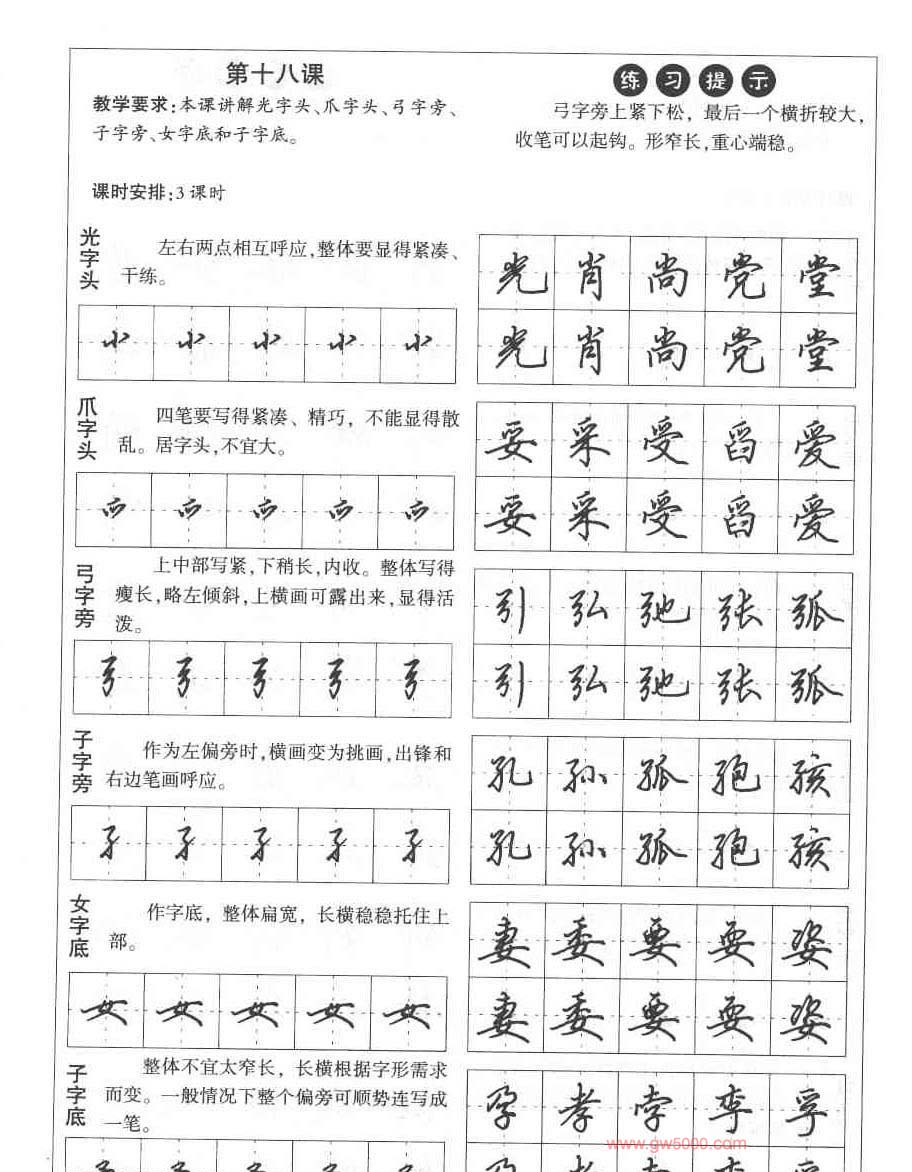 第十八课
教学要求:本课讲解光字头、爪字头、弓字旁、
子字旁、女字底和子字底。
课时安排:3课时
练习提示
弓字旁上紧下松，最后一个横折较大，
收笔可以起钩。形窄长,重心端稳。
光字头
左右两点相互呼应,整体要显得紧凑、
干练。
光肖尚党堂
光肖尚党堂
爪字头
四笔要写得紧凑、精巧，不能显得散
乱。居字头,不宜大。
妥采受舀爱
妥采受舀爱
弓字旁
上中部写紧,下稍长,内收。整体写得
瘦长,略左倾斜,上横画可露出来,显得活
泼。
弓弓弓弓弓
引弘弛张弧
引弘弛张弧
子字旁
作为左偏旁时,横画变为挑画,出锋和
右边笔画呼应。
子子子子子
孔孙孤孢孩
孔孙孤孢孩
女字底
作字底，整体扁宽，长横稳稳托住上
部。
女女女女女
妻委要耍姿
妻委要耍姿
子字底
整体不宜太窄长，长横根据字形需求
而变。一般情况下整个偏旁可顺势连写成
一笔。
孕孝孛李孚
www.gw5000.com